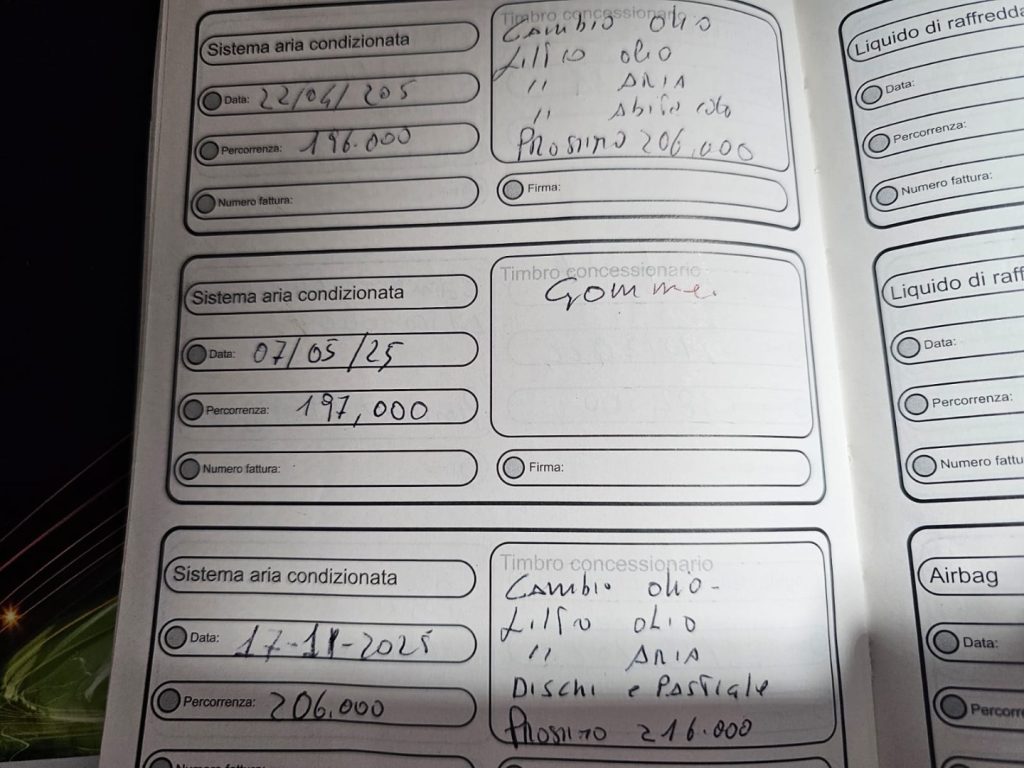 Sistema aria condizionata
Data: 22/04/205
Percorrenza: 196.000
Numero fattura:
Timbro concessionario
Cambio olio
Filtro olio
" ARIA
" Abitacolo
Prossimo 206.000
Firma:
Sistema aria condizionata
Data: 07/05/25
Percorrenza: 197,000
Numero fattura:
Timbro concessionario
Gomme.
Firma:
Sistema aria condizionata
Data: 17-11-2025
Percorrenza: 206.000
Numero fattura:
Timbro concessionario
Cambio olio-
Filtro olio
" ARIA
Dischi e Pastiglie
Prossimo 216.000
Liquido di raffredda
Data:
Percorrenza:
Numero fattura:
Liquido di raff
Data:
Percorrenza:
Numero fattu
Airbag
Data:
Percorre